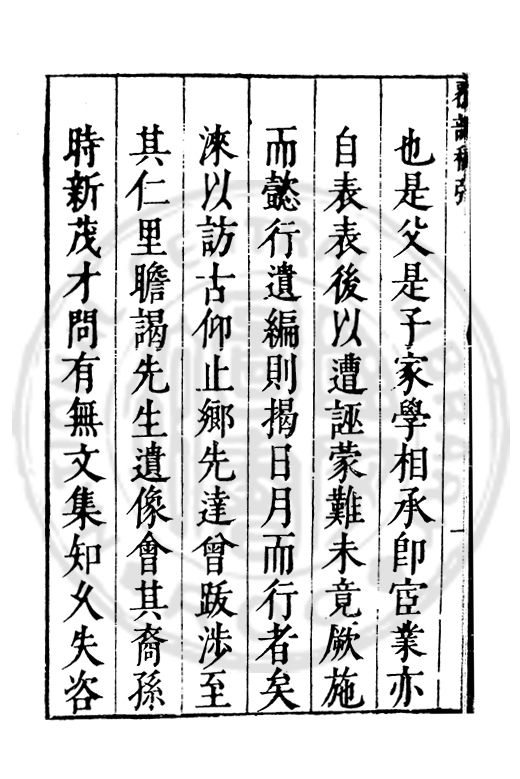 也是父是子家學相承卽宦業亦
自表表後以遭誣蒙難未竟厥施
而懿行遺編則揭日月而行者矣
淶以訪古仰止鄉先達曾跋涉至
其仁里瞻謁先生遺像會其裔孫
時新茂才問有無文集知久失咨